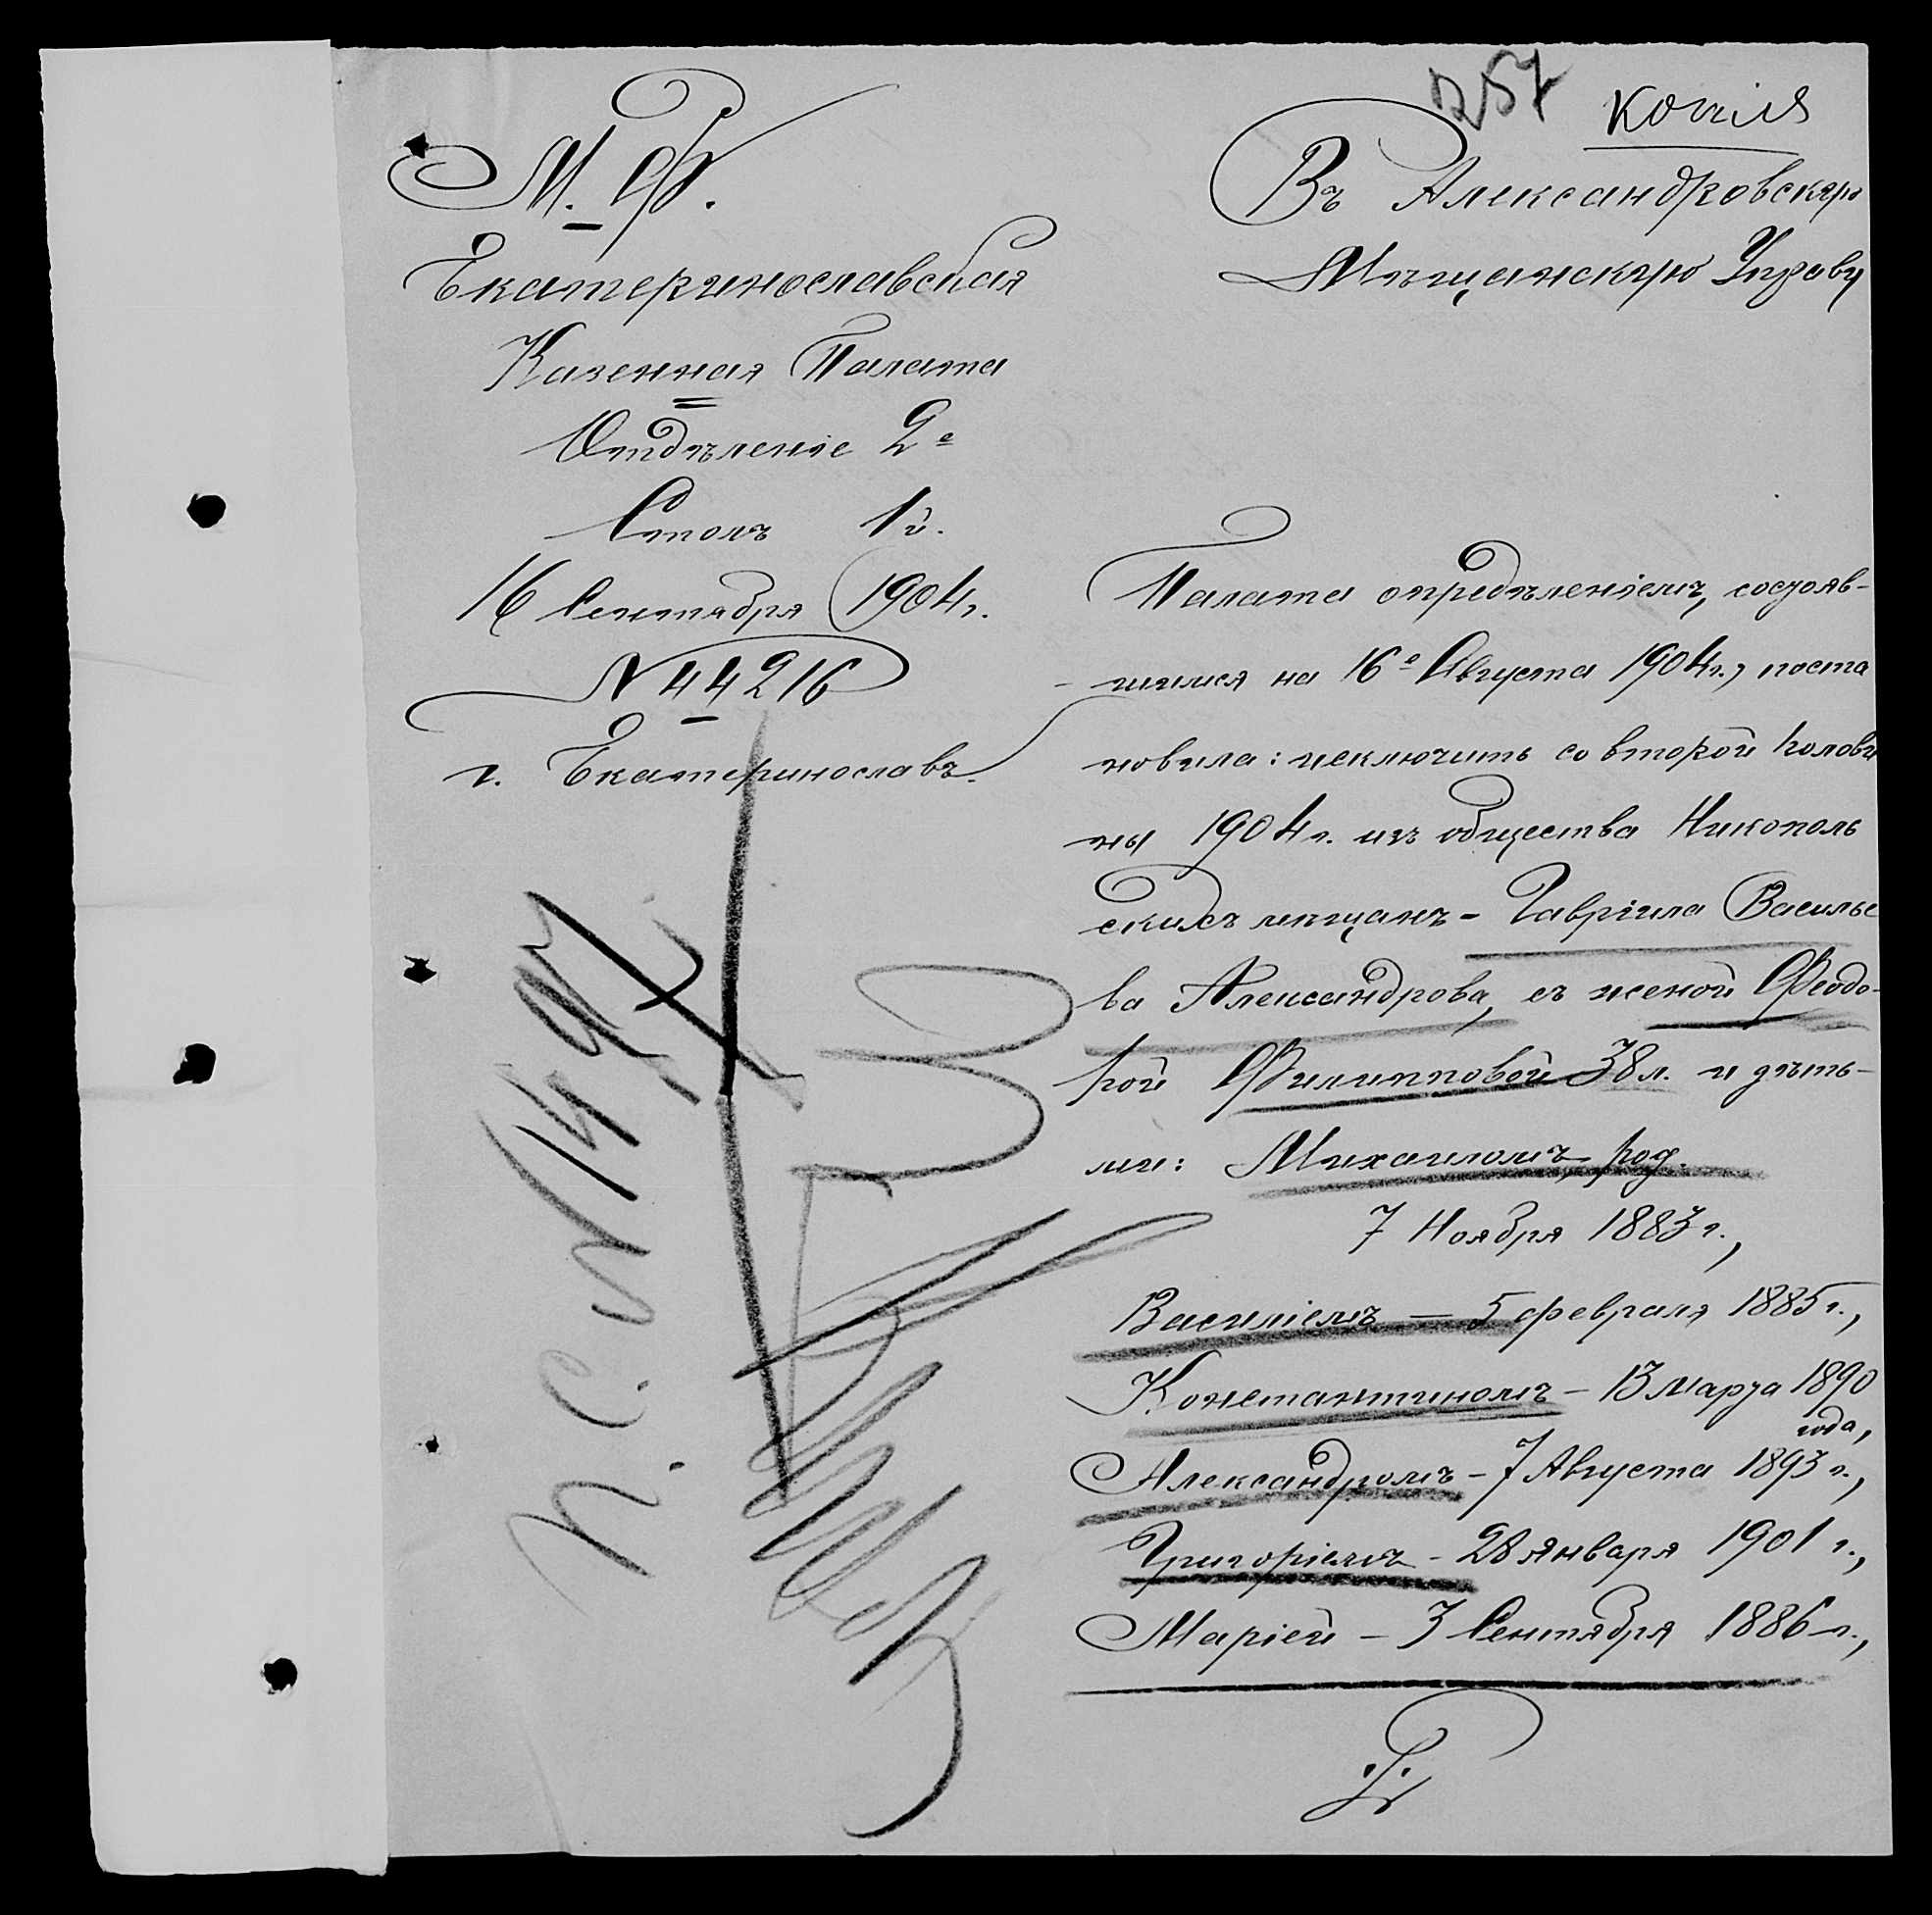 257
копія
М. Ф.
Екатеринославская
Казенная Палата
Отдѣленіе 2е
Столъ 1й.
16 Сентября 1904г.
N 44216
г. Екатеринославъ.
Въ Александровскую
Мѣщанскую Управу
Палата опредѣленіемъ, состояв-
шимся на 16е Августа 1904г., поста
новила: исключить со второй полови
ны 1904 г. изъ общества Никополь
скихъ мѣщанъ - Гавріила Василье
ва Александрова, съ женой Феодо-
рой Филипповой 38 л. и дѣть-
ми: Михаиломъ, род.
7 Ноября 1883 г.,
Василіемъ — 5 февраля 1885 г.,
Константиномъ - 13 марта 1890
года,
Александромъ - 7 Августа 1893 г.,
Григоріемъ - 28 января 1901 г.,
Маріей - 3 Сентября 1886 г.,